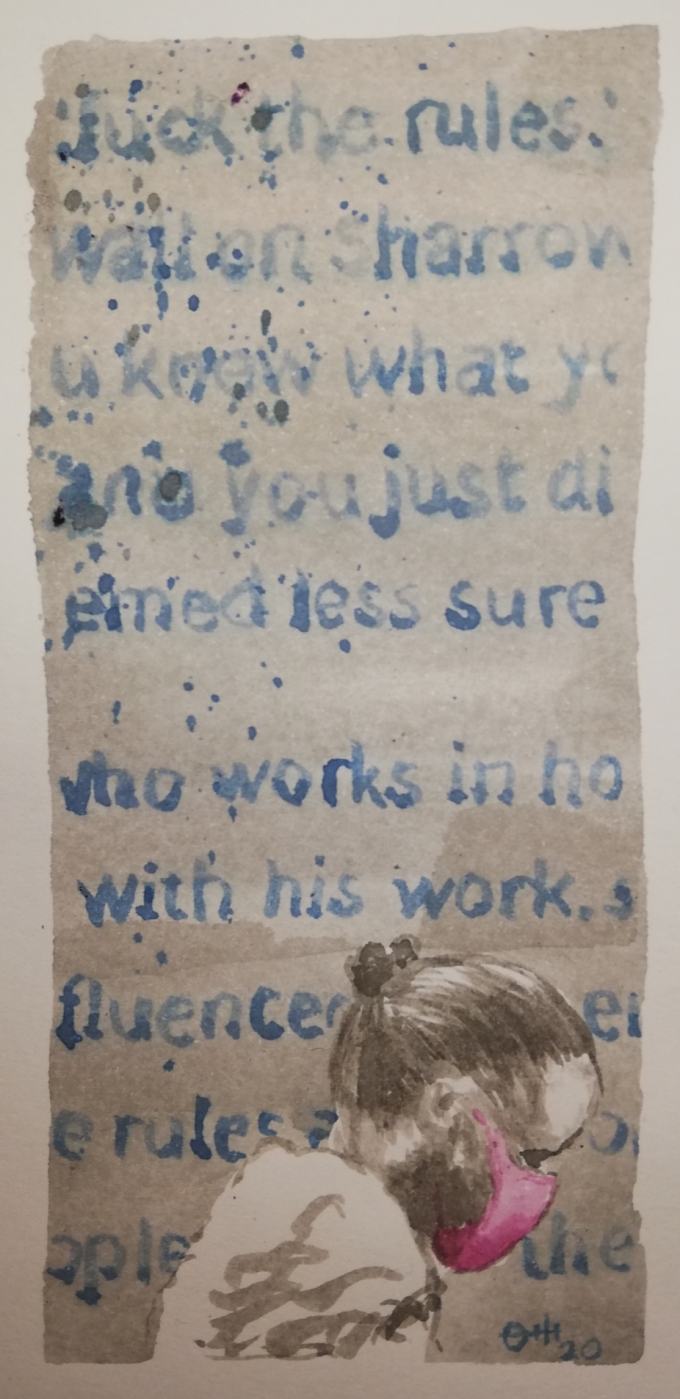 'fuck the rules.'
wall on sharrow
u know what yo
and you just di
emed less sure
who works in ho
with his work. s
fluenced er
e rules a
ople the
20